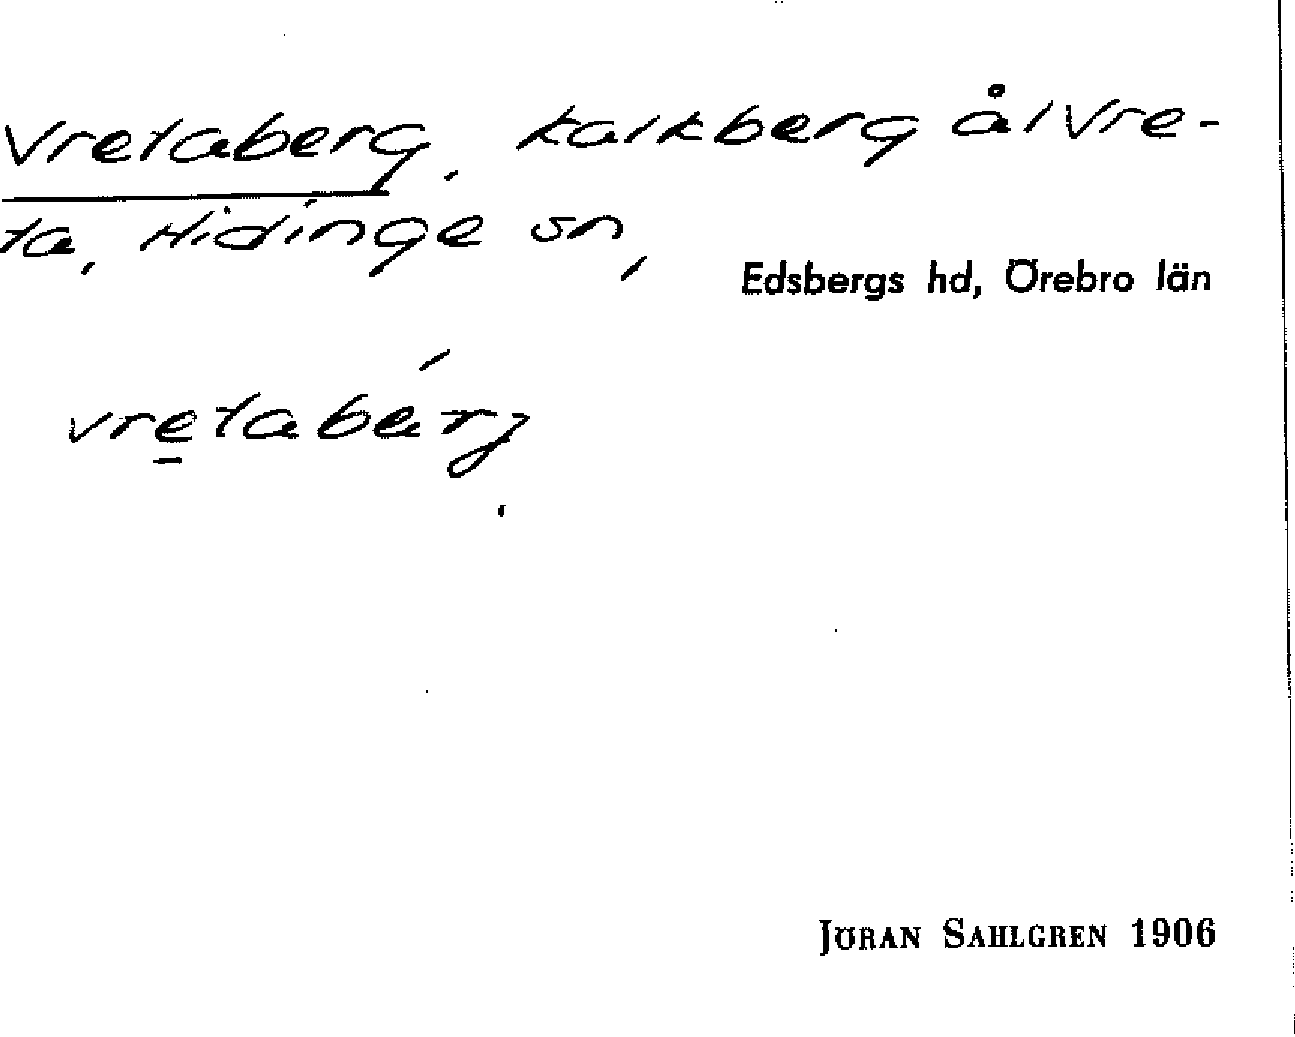 Vretaberg, kalkberg å Vre-
ta, Hidinge sn,
Edsbergs hd, Örebro län
vretabärj
.
JÖRAN SAHLGREN 1906